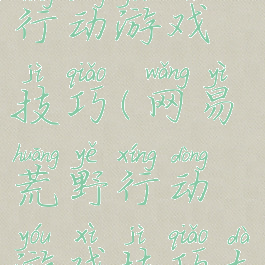 行动游戏
jì qiǎo wǎng yì
技巧(网易
huāng yě xíng dòng
荒野行动
yóu xì jì qiǎo dà
游戏技巧大